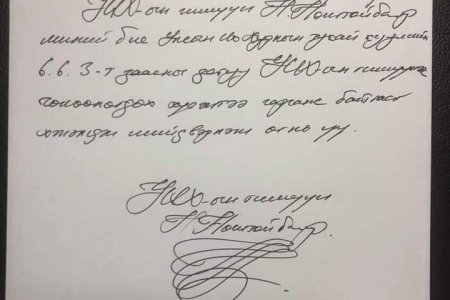 УИХ-ын гишүүн Н.Номтойбаяр
миний бие Улсын Их Хурлын тухай хуулийн
6.6.3-т заасны дагуу УИХ-ын гишүүнээс
чөлөөлөгдөх хүсэлтээ гаргаж байгааг
хэлэлцэн шийдвэрлэж өгнө үү.
УИХ-ын гишүүн
Н.Номтойбаяр